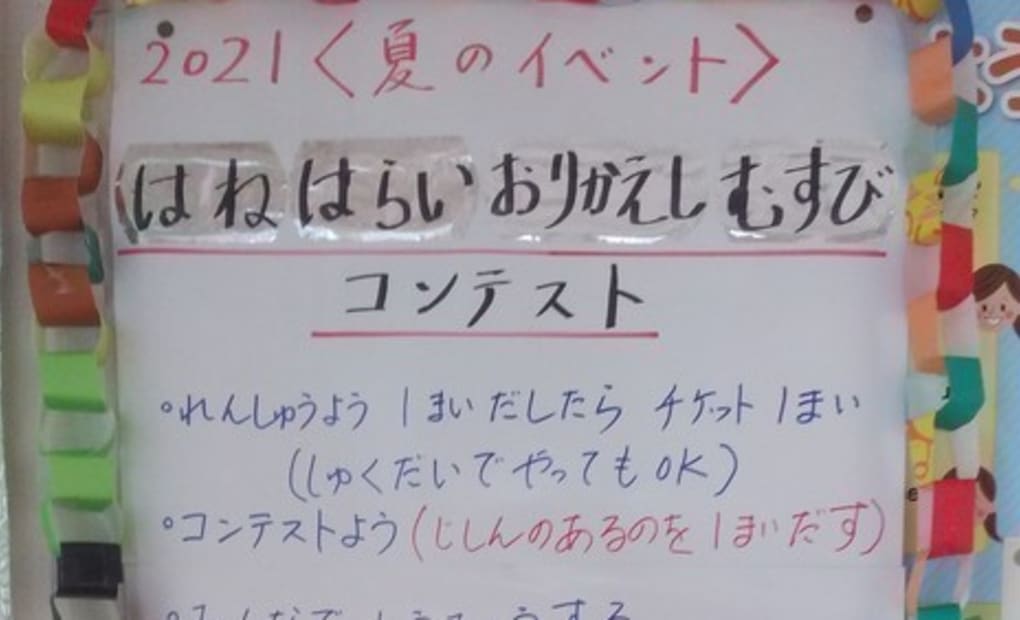 2021〈夏のイベント〉
はね はらい おりかえし むすび
コンテスト
°れんしゅうよう 1まいだしたら チケット 1まい
(しゅくだいでやってもOK)
°コンテストよう(じしんのあるのを 1まいだす)